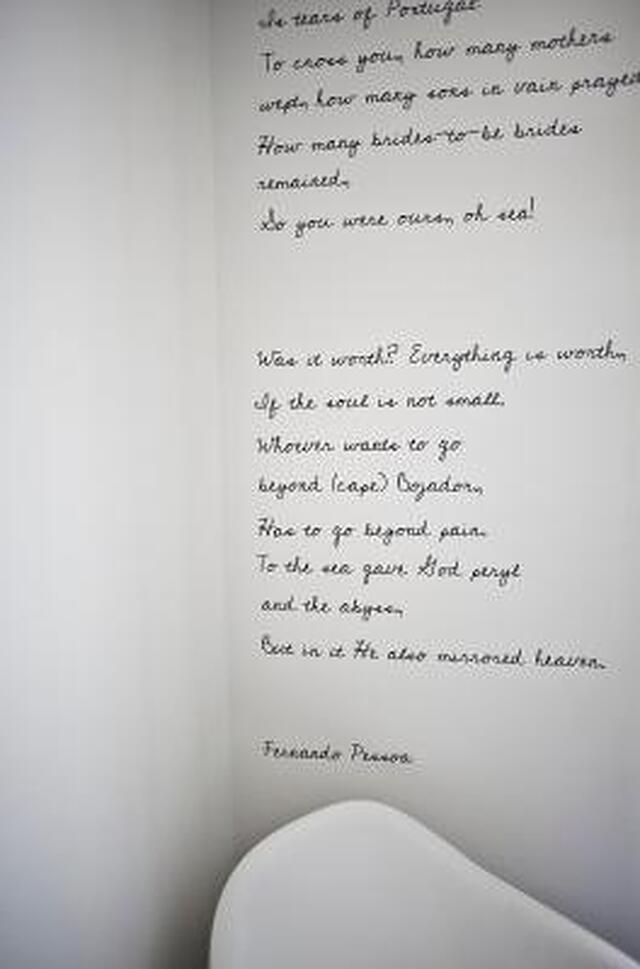 Is tears of Portugal
To cross you, how many mothers
wept, how many sons in vain prayed
How many brides-to-be brides
remained,
So you were ours, oh sea!
Was it worth? Everything is worth,
If the soul is not small.
Whoever wants to go
beyond (cape) Bojador,
Has to go beyond pain.
To the sea gave God peryl
and the abyss,
But in it He also mirrored heaven.
Fernando Pessoa